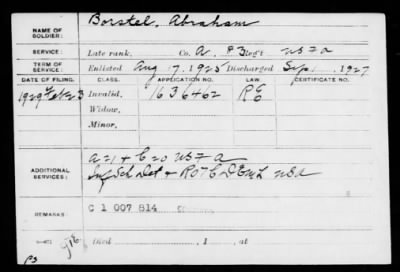 NAME OF SOLDIER: Borstel, Abraham
SERVICE: Late rank, Co. A, 83 Reg't US F A
TERM OF SERVICE: Enlisted Aug 17, 1925 Discharged Sep 1927
DATE OF FILING. CLASS. APPLICATION NO. LAW. CERTIFICATE NO.
1929 Feb 23 Invalid, 1636462 RE
Widow,
Minor,
ADDITIONAL SERVICES: US F A
Inf Sch Det + USA
REMARKS: C 1 007 814
Died , 1 , at